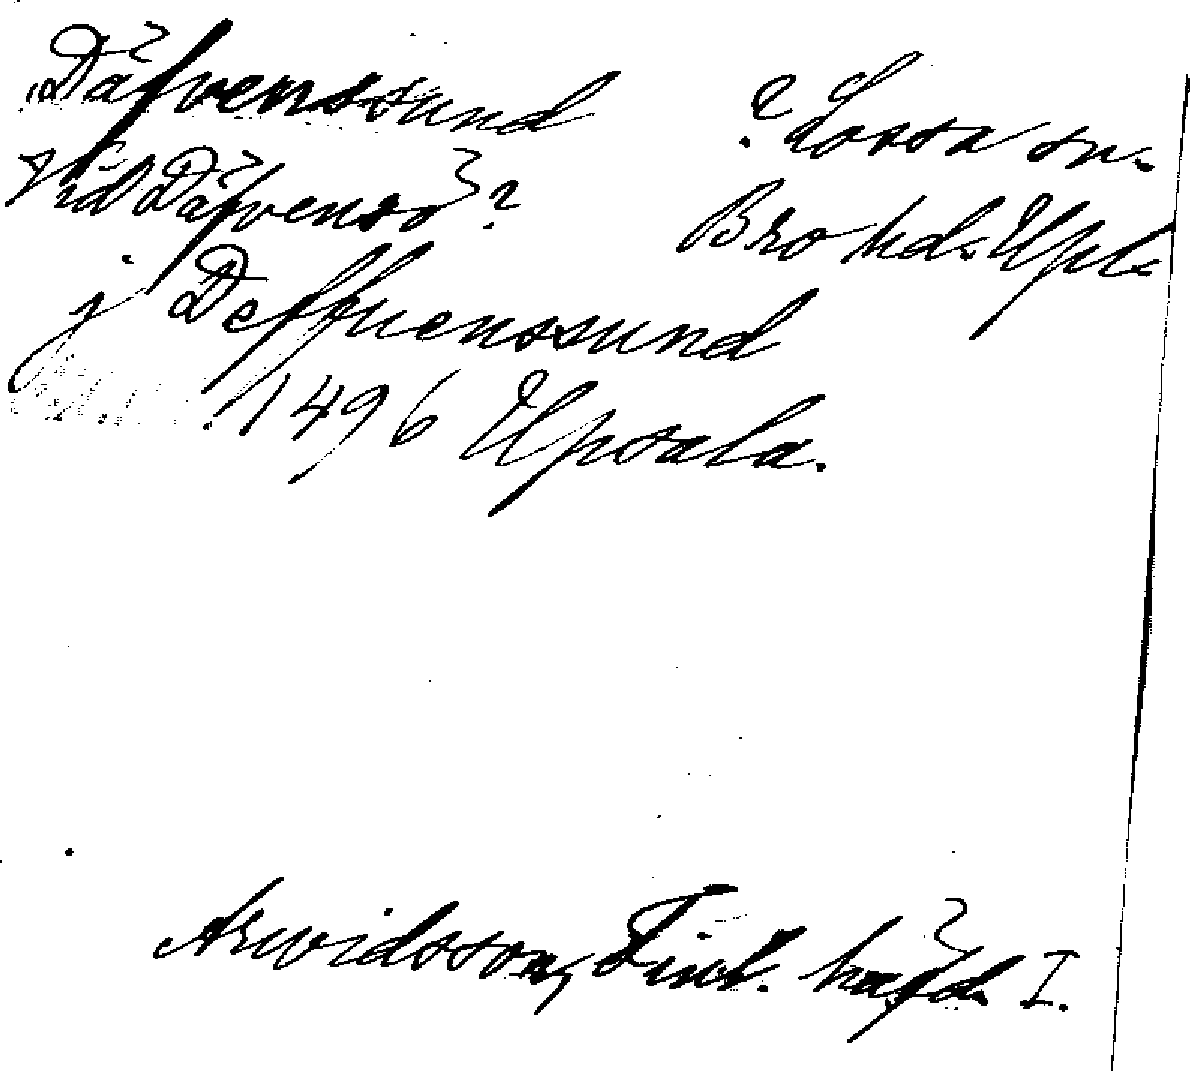 Däfvenssund
? Lossa sn.
vid Däfvensö?
Bro hd. Upl.
j Deffuenssund
1496 Upsala.
Arwidsson, Finl. häfd. I.